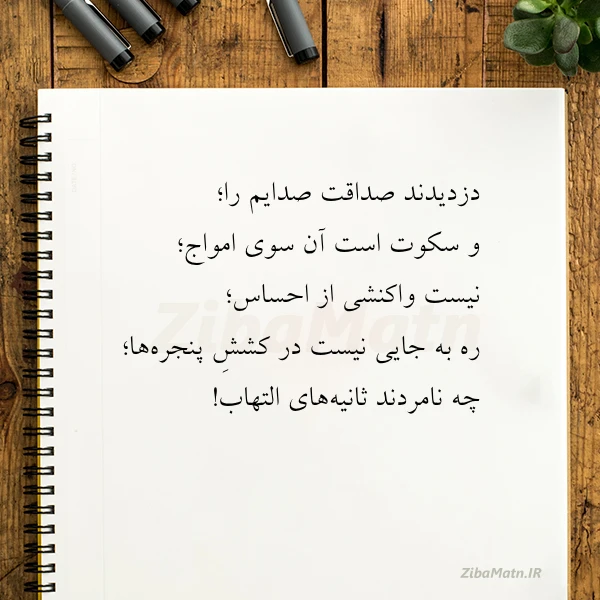 دزدیدند صداقت صدایم را؛
و سکوت است آن سوی امواج؛
نیست واکنشی از احساس؛
ره به جایی نیست در کششِ پنجره‌ها؛
چه نامردند ثانیه‌های التهاب!
ZibaMatn
ZibaMatn.IR